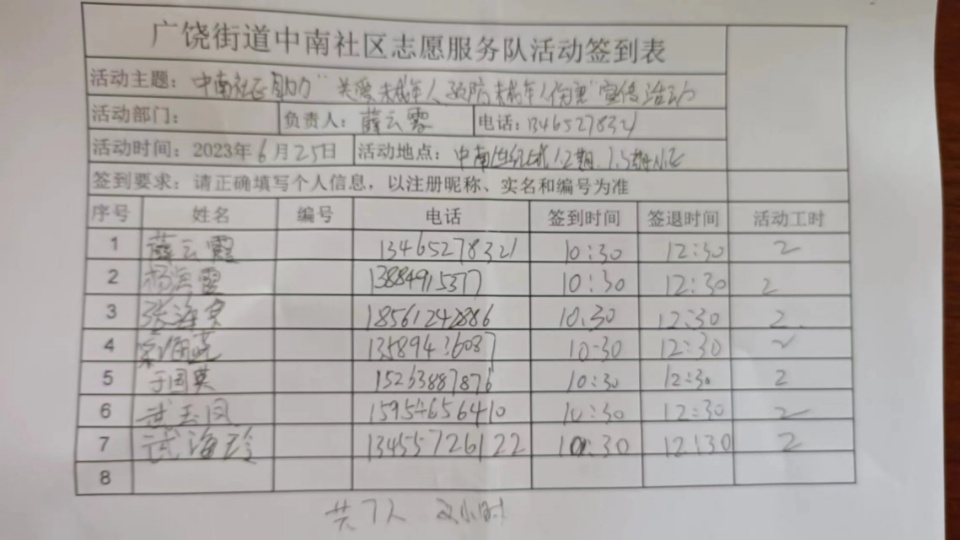 广饶街道中南社区志愿服务队活动签到表
活动主题：中南社区助力"关爱未成年人 预防未成年人伤害"宣传活动
活动部门： 负责人：薛云霞 电话：13465278321
活动时间：2023年6月25日 活动地点：中南世纪城1.2期、1.5期
签到要求：请正确填写个人信息，以注册昵称、实名和编号为准
序号 姓名 编号 电话 签到时间 签退时间 活动工时
1 薛云霞 13465278321 10:30 12:30 2
2 13884915377 10:30 12:30 2
3 张海 18561242886 10:30 12:30 2
4 13589436087 10:30 12:30 2
5 于国英 15263887876 10:30 12:30 2
6 武玉凤 10:30 12:30 2
7 武海玲 13455726122 10:30 12:30 2
8
共7人 2小时